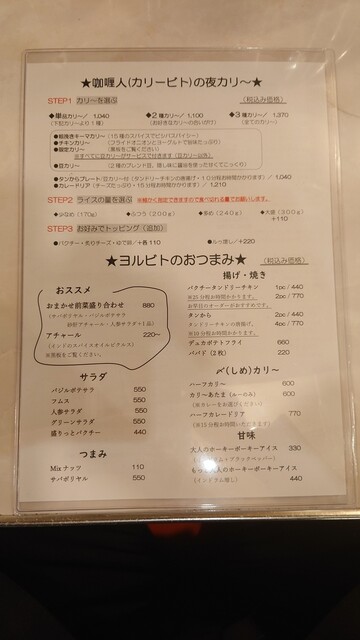 ★咖喱人(カリービト)の夜カリ～★
STEP1 カリ～を選ぶ (税込み価格)
◆単品カリ～／ 1,040 ◆2種カリ～／ 1,100 ◆3種カリ～／ 1,370
(下記カリ～より1種) (お好きなカリ～の合いがけ) (全てのカリ～)
●粗挽きキーマカリ～ (15種のスパイスでビシバスパイシー)
●チキンカリ～ (フライドオニオンとヨーグルトで旨味たっぷり)
●限定カリ～ (黒板をご覧ください)
●豆カリ～
●タンからプレート／1,040
●カレードリア (チーズたっぷり・15分程お時間かかります)／ 1,210
STEP2 ライスの量を選ぶ
◇少なめ (170g) ◇ふつう (200g) ◇多め (240g) ◇大盛 (300g)
+110
STEP3 お好みでトッピング (追加)
●パクチー・炙りチーズ・ゆで卵／+各110 ●ルゥ増し／+220
★ヨルビトのおつまみ★ (税込み価格)
おススメ
おまかせ前菜盛り合わせ 880
(サバポリヤル・バジルポテサラ
砂肝アチャール・人参サラダ+1品)
アチャール 220～
(インドのスパイスオイルピクルス)
※黒板をご覧ください。
サラダ
バジルポテサラ 550
フムス 550
人参サラダ 550
グリーンサラダ 550
盛りっとパクチー 440
つまみ
Mixナッツ 110
サバポリヤル 550
揚げ・焼き
パクチータンドリーチキン 1pc / 440
※25分程お時間かかります。 2pc / 770
お早目のオーダーがおすすめです。
タンから 2pc / 440
タンドリーチキンの唐揚げ。 4pc / 770
※10分程お時間かかります。
デュカポテトフライ 660
パパド (2枚) 220
〆(しめ)カリ～
ハーフカリ～ 600
カリ～あたま (ルーのみ) 600
ハーフカレードリア 770
(※15分程お時間いただきます)
甘味
大人のホーキーポーキーアイス 330
ホーキーポーキーアイス
(インドラム増し) 440